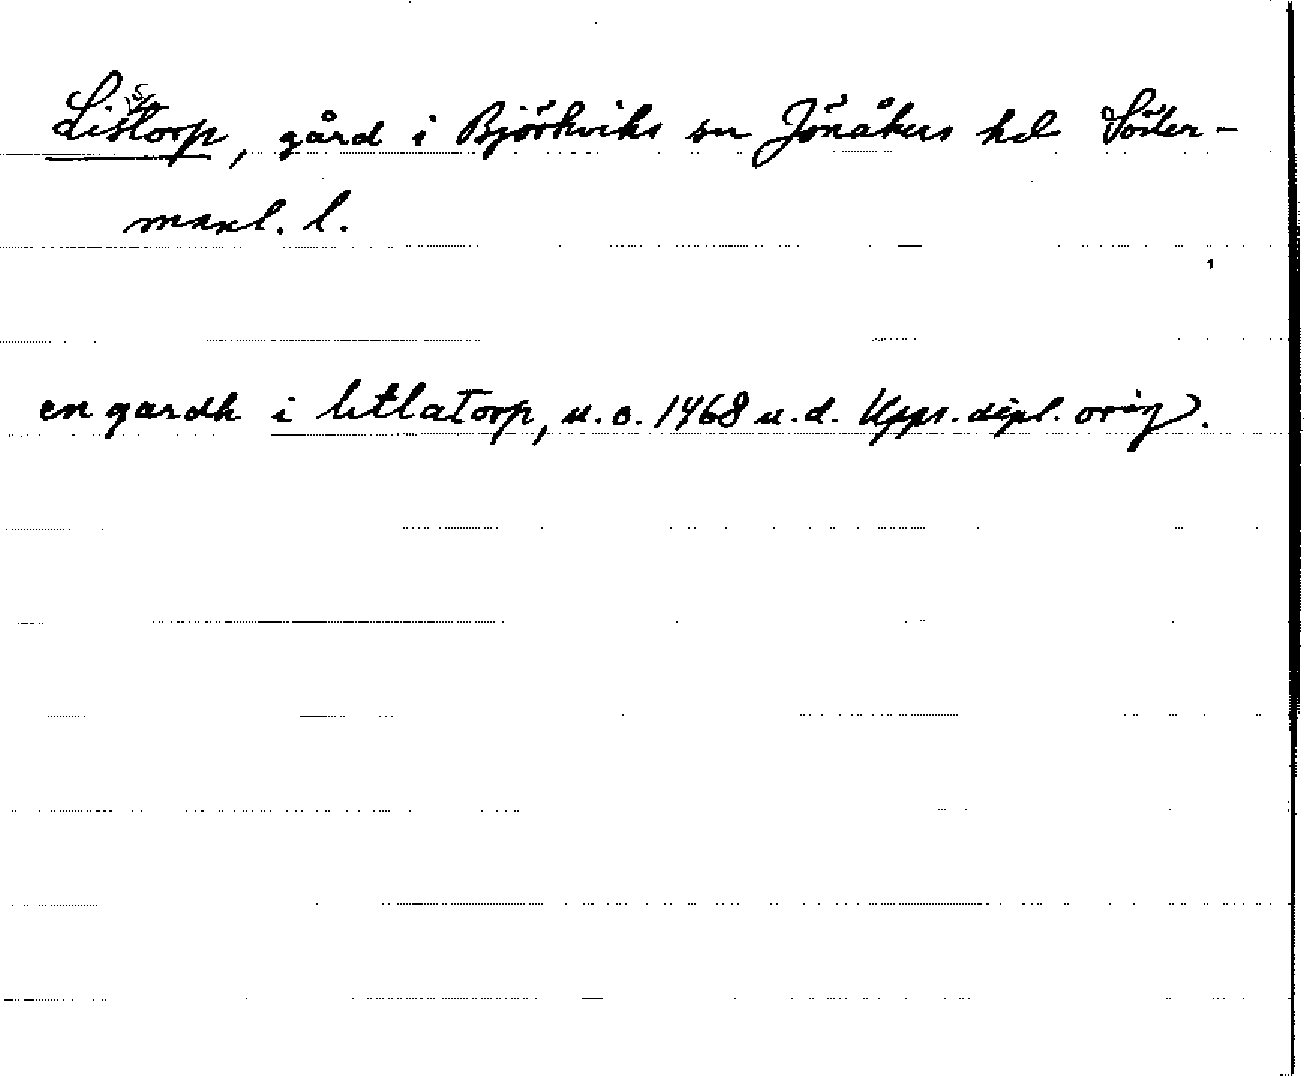 Listorp, gård i Björkviks sn Jönåkers hd Söder-
manl. l.
en gardh i litlatorp, u.o. 1468 u.d. Upps. dipl. orig.